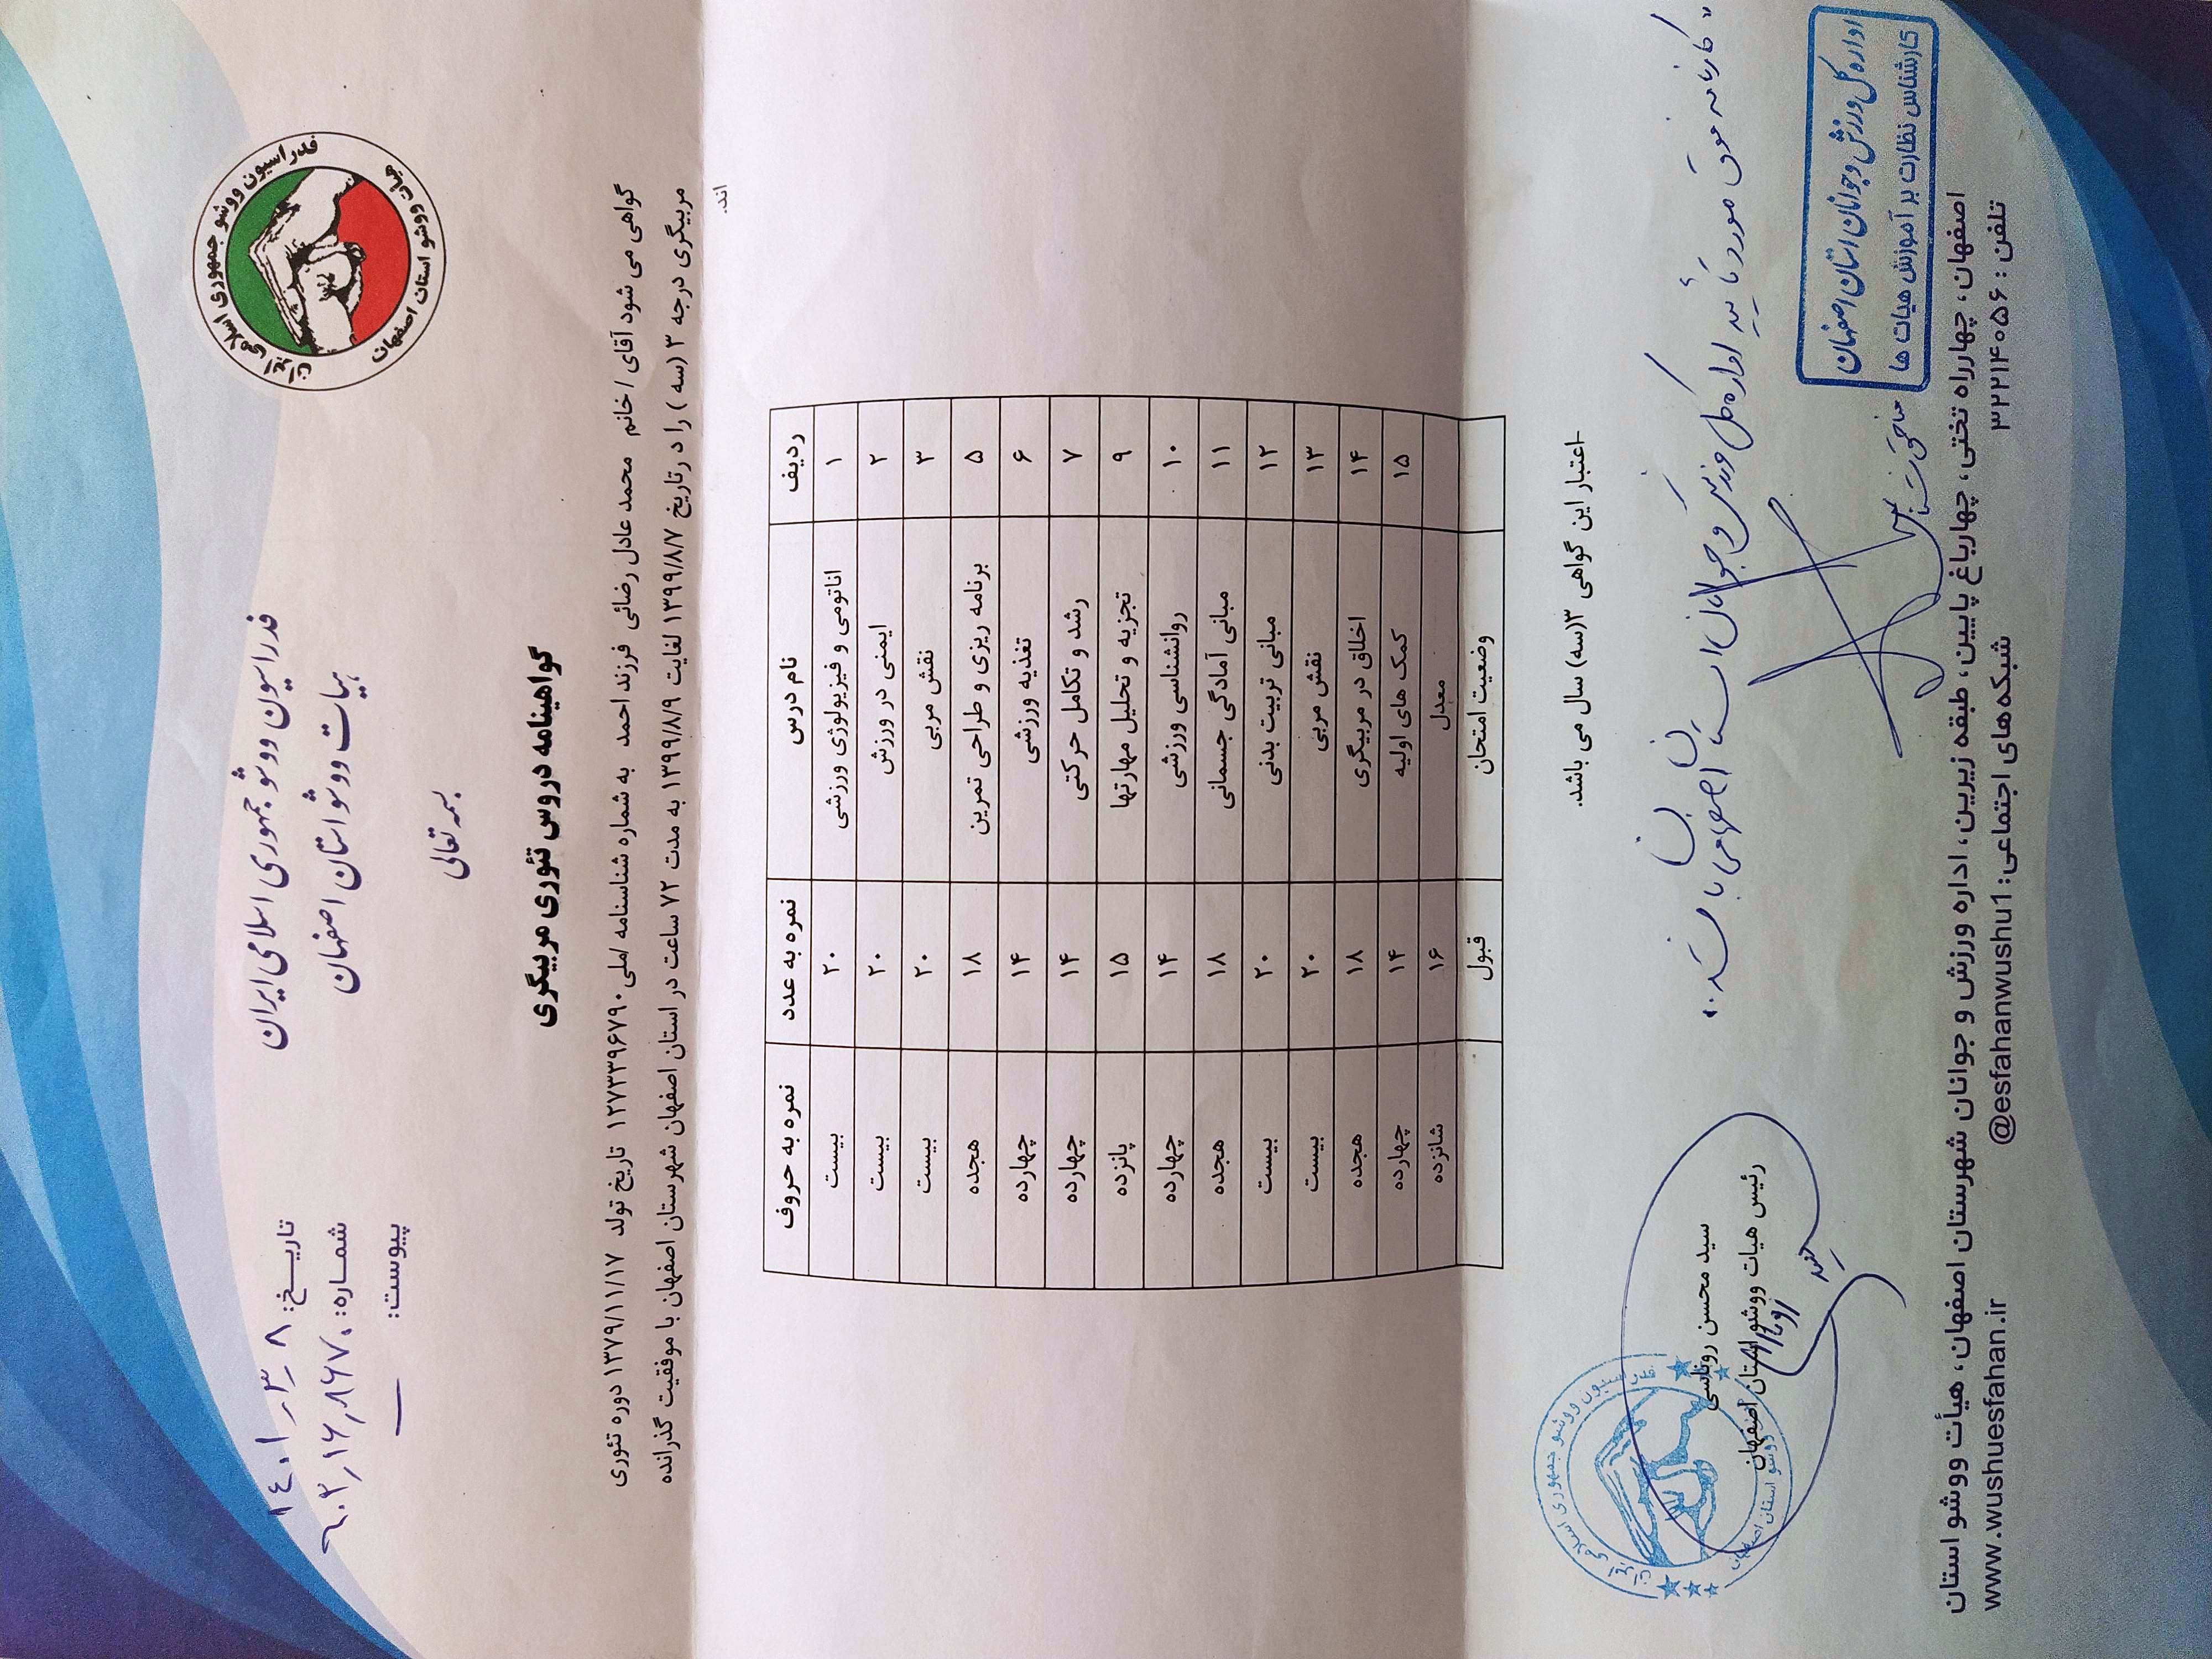 فدراسیون ووشو جمهوری اسلامی ایران
هیات ووشو استان اصفهان
فدراسیون ووشو جمهوری اسلامی ایران
هیات ووشو استان اصفهان
تاریخ: ۱۴۰۱٫۳٫۸
شماره:
پیوست: —
بسمه تعالی
گواهینامه دروس تئوری مربیگری
گواهی می شود آقای / خانم محمد عادل رضائی فرزند احمد به شماره شناسنامه /ملی ۱۲۷۳۳۹۶۷۹۰ تاریخ تولد ۱۳۷۹/۱۱/۱۷ دوره تئوری
مربیگری درجه ۳ (سه ) را د رتاریخ ۱۳۹۹/۸/۷ لغایت ۱۳۹۹/۸/۹ به مدت ۷۲ ساعت در استان اصفهان شهرستان اصفهان با موفقیت گذرانده
اند.
ردیف نام درس نمره به عدد نمره به حروف
۱ اناتومی و فیزیولوژی ورزشی ۲۰ بیست
۲ ایمنی در ورزش ۲۰ بیست
۳ نقش مربی ۲۰ بیست
۵ برنامه ریزی و طراحی تمرین ۱۸ هجده
۶ تغذیه ورزشی ۱۴ چهارده
۷ رشد و تکامل حرکتی ۱۴ چهارده
۹ تجزیه و تحلیل مهارتها ۱۵ پانزده
۱۰ روانشناسی ورزشی ۱۴ چهارده
۱۱ مبانی آمادگی جسمانی ۱۸ هجده
۱۲ مبانی تربیت بدنی ۲۰ بیست
۱۳ نقش مربی ۲۰ بیست
۱۴ اخلاق در مربیگری ۱۸ هجده
۱۵ کمک های اولیه ۱۴ چهارده
معدل ۱۶ شانزده
وضعیت امتحان قبول
-اعتبار این گواهی ۳(سه) سال می باشد.
" کارنامه فوق مورد تأیید اداره کل ورزش و جوانان استان اصفهان می باشد."
سید محسن روناسی
رئیس هیات ووشو استان اصفهان
فدراسیون ووشو جمهوری اسلامی ایران
ووشو استان اصفهان
اداره کل ورزش و جوانان استان اصفهان
کارشناس نظارت بر آموزش هیات ها
اصفهان، چهارراه تختی، چهارباغ پایین، طبقه زیرین، اداره ورزش و جوانان شهرستان اصفهان، هیأت ووشو استان
تلفن : ۳۲۲۱۴۰۵۶ شبکه‌های اجتماعی: @esfahanwushu1 www.wushuesfahan.ir